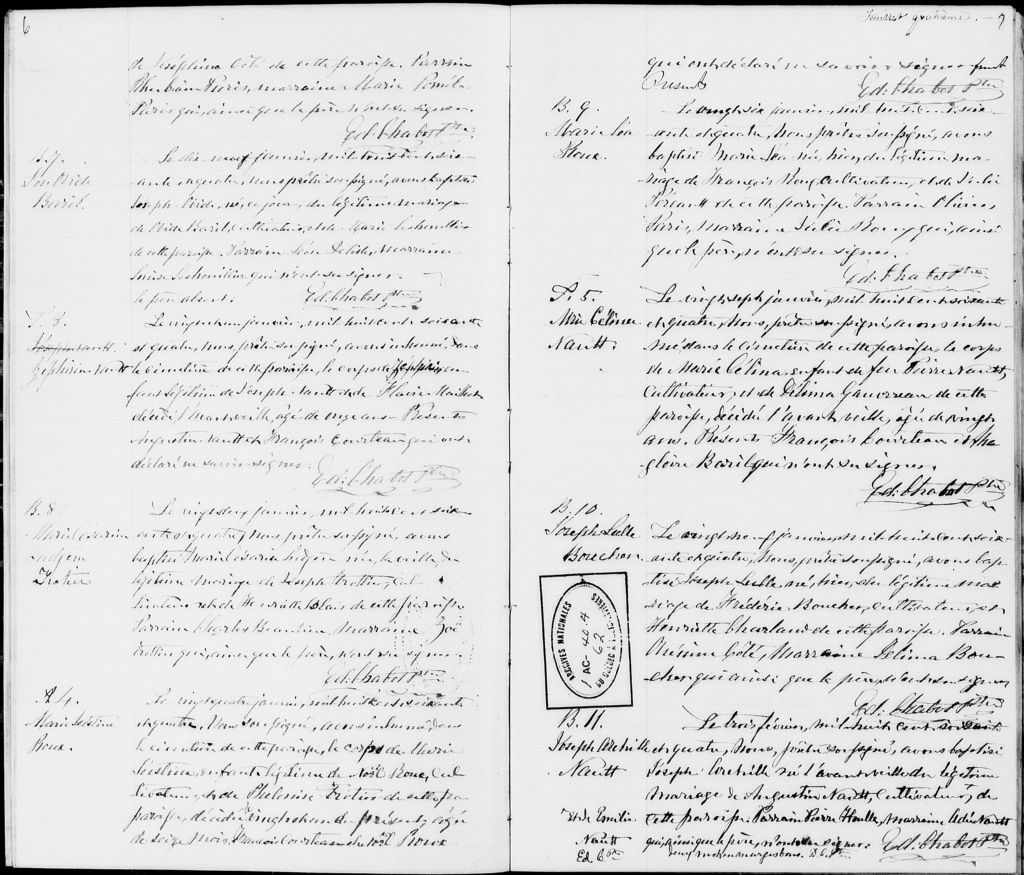 6
de Joséphine Côté de cette paroisse. Parrain
Paris, marraine Marie
Paris qui, ainsi que le père n'ont su signer.
Ed: Chabot Ptre
B. 7.
Jos. Ovide
Baril.
Le dix neuf janvier, mil huit cent soix-
ante et quatre, nous prêtre soussigné, avons baptisé
Joseph Ovide, né, ce jour, du légitime mariage
de Ovide Baril, cultivateur, et de Marie
de cette paroisse. Parrain Léon Delisle, marraine
qui n'ont su signer.
le père absent. Ed: Chabot Ptre
S. 3.
Zéphirin Nault
Le vingt et un janvier, mil huit cent soixante
et quatre, nous, prêtre soussigné, avons inhumé dans
le cimetière de cette paroisse, le corps de Zéphirin, en-
fant légitime de Joseph Nault et de Flavie Mailhot
décédé l'avant veille, âgé de onze ans. Présents
Augustin Nault et François Courteau qui ont
déclaré ne savoir signer.
Ed: Chabot Ptre
B. 8.
Marie Césarie
Ludgem
Trotier
Le vingt deux janvier, mil huit cent soix-
ante et quatre, nous prêtre soussigné, avons
baptisé Marie Césarie née, la veille du
légitime mariage de Joseph Trottier, cul-
tivateur et de Henriette Blais de cette paroisse
Parrain Charles Beaudoin, marraine Zoë
Trottier qui, ainsi que le père, n'ont su signer.
Ed: Chabot Ptre
S 4.
Marie Justine
Roux.
Le vingt quatre janvier, mil huit cent soixante
et quatre, nous soussigné, avons inhumé dans
le cimetière de cette paroisse, le corps de Marie
Justine, enfant légitime de Noël Roux, cul-
tivateur, et de Philomise Trotier de cette pa-
roisse, décédée âgée
de seize mois, François Courteau et Noël Roux
Feuillet quatrième. 7
qui ont déclaré ne savoir signer
Présents Ed: Chabot Ptre
B. 9.
Marie Léa
Houx.
Le vingt six janvier, mil huit cent soix-
ante et quatre, nous prêtre soussigné, avons
baptisé Marie Léa née, hier, du légitime ma-
riage de François cultivateur, et de Julie
Perreault de cette paroisse. Parrain Olivier
Paris, marraine Julie qui, ainsi
que le père, n'ont su signer.
Ed: Chabot Ptre
S. 5.
Mrie Célina
Nault.
Le vingt sept janvier, mil huit cent soixante
et quatre, nous, prêtre soussigné, avons inhu-
mé dans le cimetière de cette paroisse, le corps
de Marie Célina, enfant de feu Pierre Nault,
cultivateur, et de Délima Gauvreau de cette
paroisse, décédée l'avant veille, âgée de vingt
ans. Présents François Courteau et Ma-
gloire Baril qui n'ont su signer.
Ed: Chabot Ptre
B. 10.
Joseph Luille
Boucher
Le vingt neuf janvier, mil huit cent soix-
ante et quatre, nous, prêtre soussigné, avons bap-
tisé Joseph Luille né, hier, du légitime ma-
riage de Frédéric Boucher, cultivateur, et
Henriette Charland de cette paroisse. Parrain
Onésime Côté, Marraine Délima Bou-
cher qui ainsi que le père, n'ont su signer
Ed: Chabot Ptre
ARCHIVES NATIONALES
AC-40-4
62
DU QUÉBEC À TROIS-RIVIÈRES
B. 11.
Joseph Archille
Nault
Le trois février, mil huit cent soixante
et quatre, nous, prêtre soussigné, avons baptisé
Joseph Archille né l'avant veille du légitime
mariage de Augustin Nault, cultivateur, de
cette paroisse. Parrain Pierre Houlle, Marraine Adée Nault
qui, ainsi que le père, n'ont su signer. Ed: Chabot Ptre
Et de Emilie
Nault
Ed C Ptre
deux mots en marge bons. E. C. Ptre